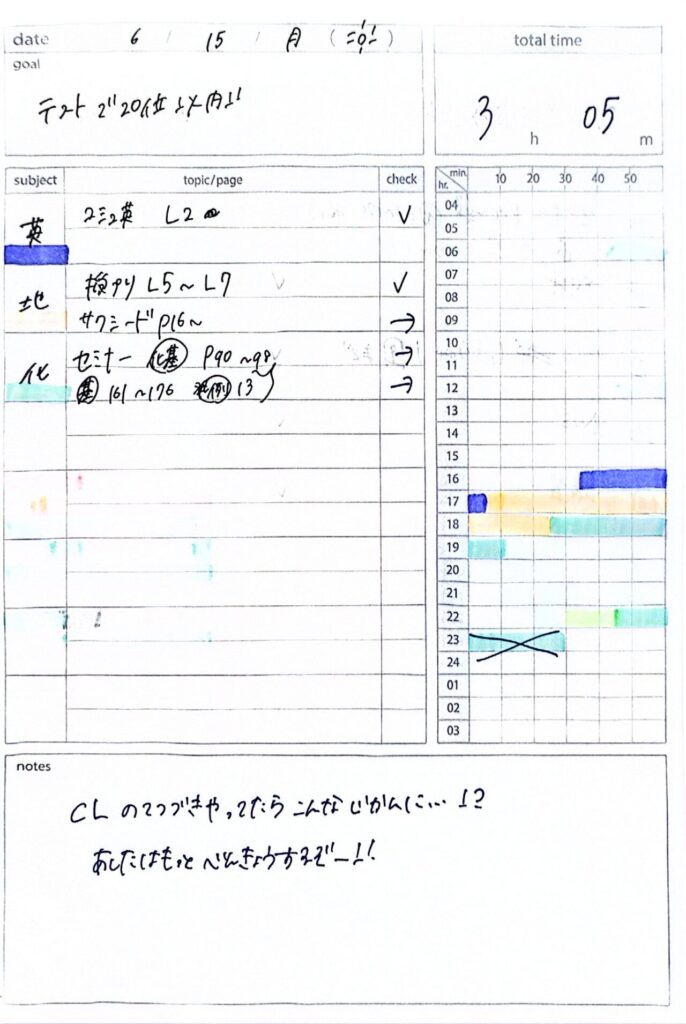 date 6 / 15 / 月 ( )
goal
テストで20位以内!!
total time
3 h 05 m
subject topic/page check
英 コミュ英 L2 ✓
地 L5～L7 ✓
サクシード P16～ →
化 セミナー 化基 P90～98 →
基 161～176 13 →
min. 10 20 30 40 50
hr.
04
05
06
07
08
09
10
11
12
13
14
15
16
17
18
19
20
21
22
23
24
01
02
03
notes
CLのつづきやってたらこんなじかんに…!?
あしたはもっとべんきょうするぞー!!